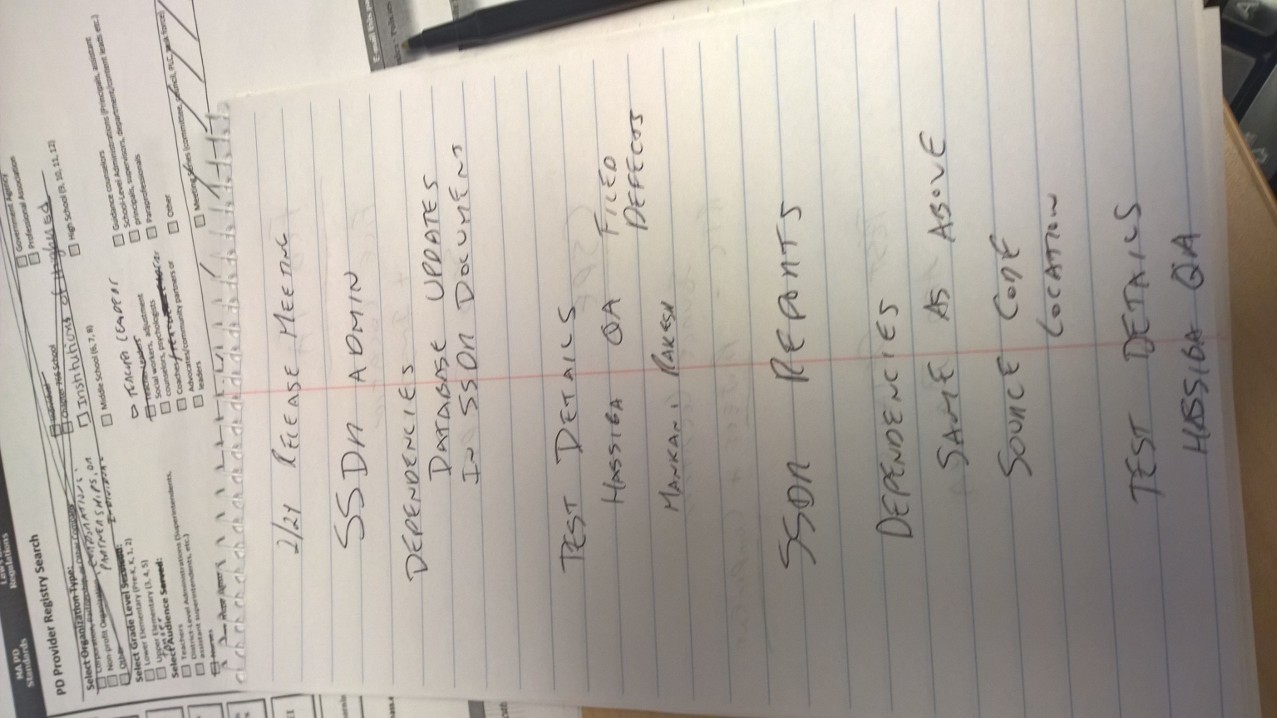 MA PD
Standards
Regulations
PD Provider Registry Search
Select Organization Type:
Government Agency
Professional Association
Institutions of higher ed
Select Grade Level Served:
Lower Elementary (Pre-K, K, 1, 2)
Upper Elementary (3, 4, 5)
Middle School (6, 7, 8)
High School (9, 10, 11, 12)
Select Audience Served:
Teachers
District-Level Administrators (Superintendents,
assistant superintendents, etc.)
TEACHER LEADER
Social workers, adjustment
counselors, psychologists
Advocates/community partners or
leaders
Guidance counselors
School-Level Administrators (Principals, assistant
principals, supervisors, department/content leads, etc.)
Paraprofessionals
Other
2/24 RELEASE MEETING
SSDR ADMIN
DEPENDENCIES
DATABASE UPDATES
IN SSDR DOCUMENT
TEST DETAILS
HASSIBA QA FILED
MANKANI RAKESH DEFECTS
SSDR REPORTS
DEPENDENCIES
SAME AS ABOVE
SOURCE CODE
LOCATION
TEST DETAILS
HASSIBA QA